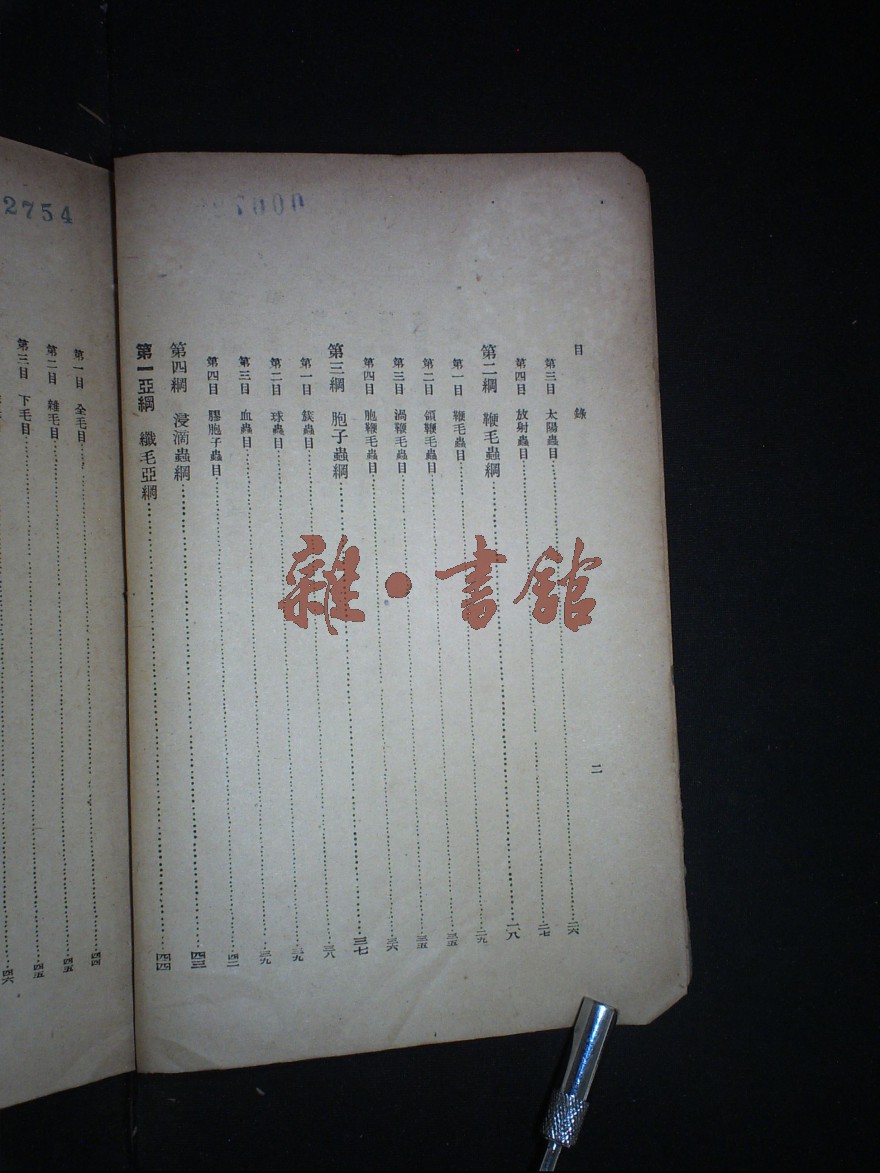 目錄
二
第三目 太陽蟲目 二六
第四目 放射蟲目 二七
第二綱 鞭毛蟲綱 一八
第一目 鞭毛蟲目 二九
第二目 領鞭毛蟲目 三五
第三目 渦鞭毛蟲目 三五
第四目 胞鞭毛蟲目 三六
第三綱 胞子蟲綱 三七
第一目 簇蟲目 三八
第二目 球蟲目 三九
第三目 血蟲目 三九
第四目 膠胞子蟲目 四二
第四綱 浸滴蟲綱 四三
第一亞綱 纖毛亞綱 四四
第一目 全毛目 四四
第二目 雜毛目 四五
第三目 下毛目 四五
四六
7000
2754
雜·書館